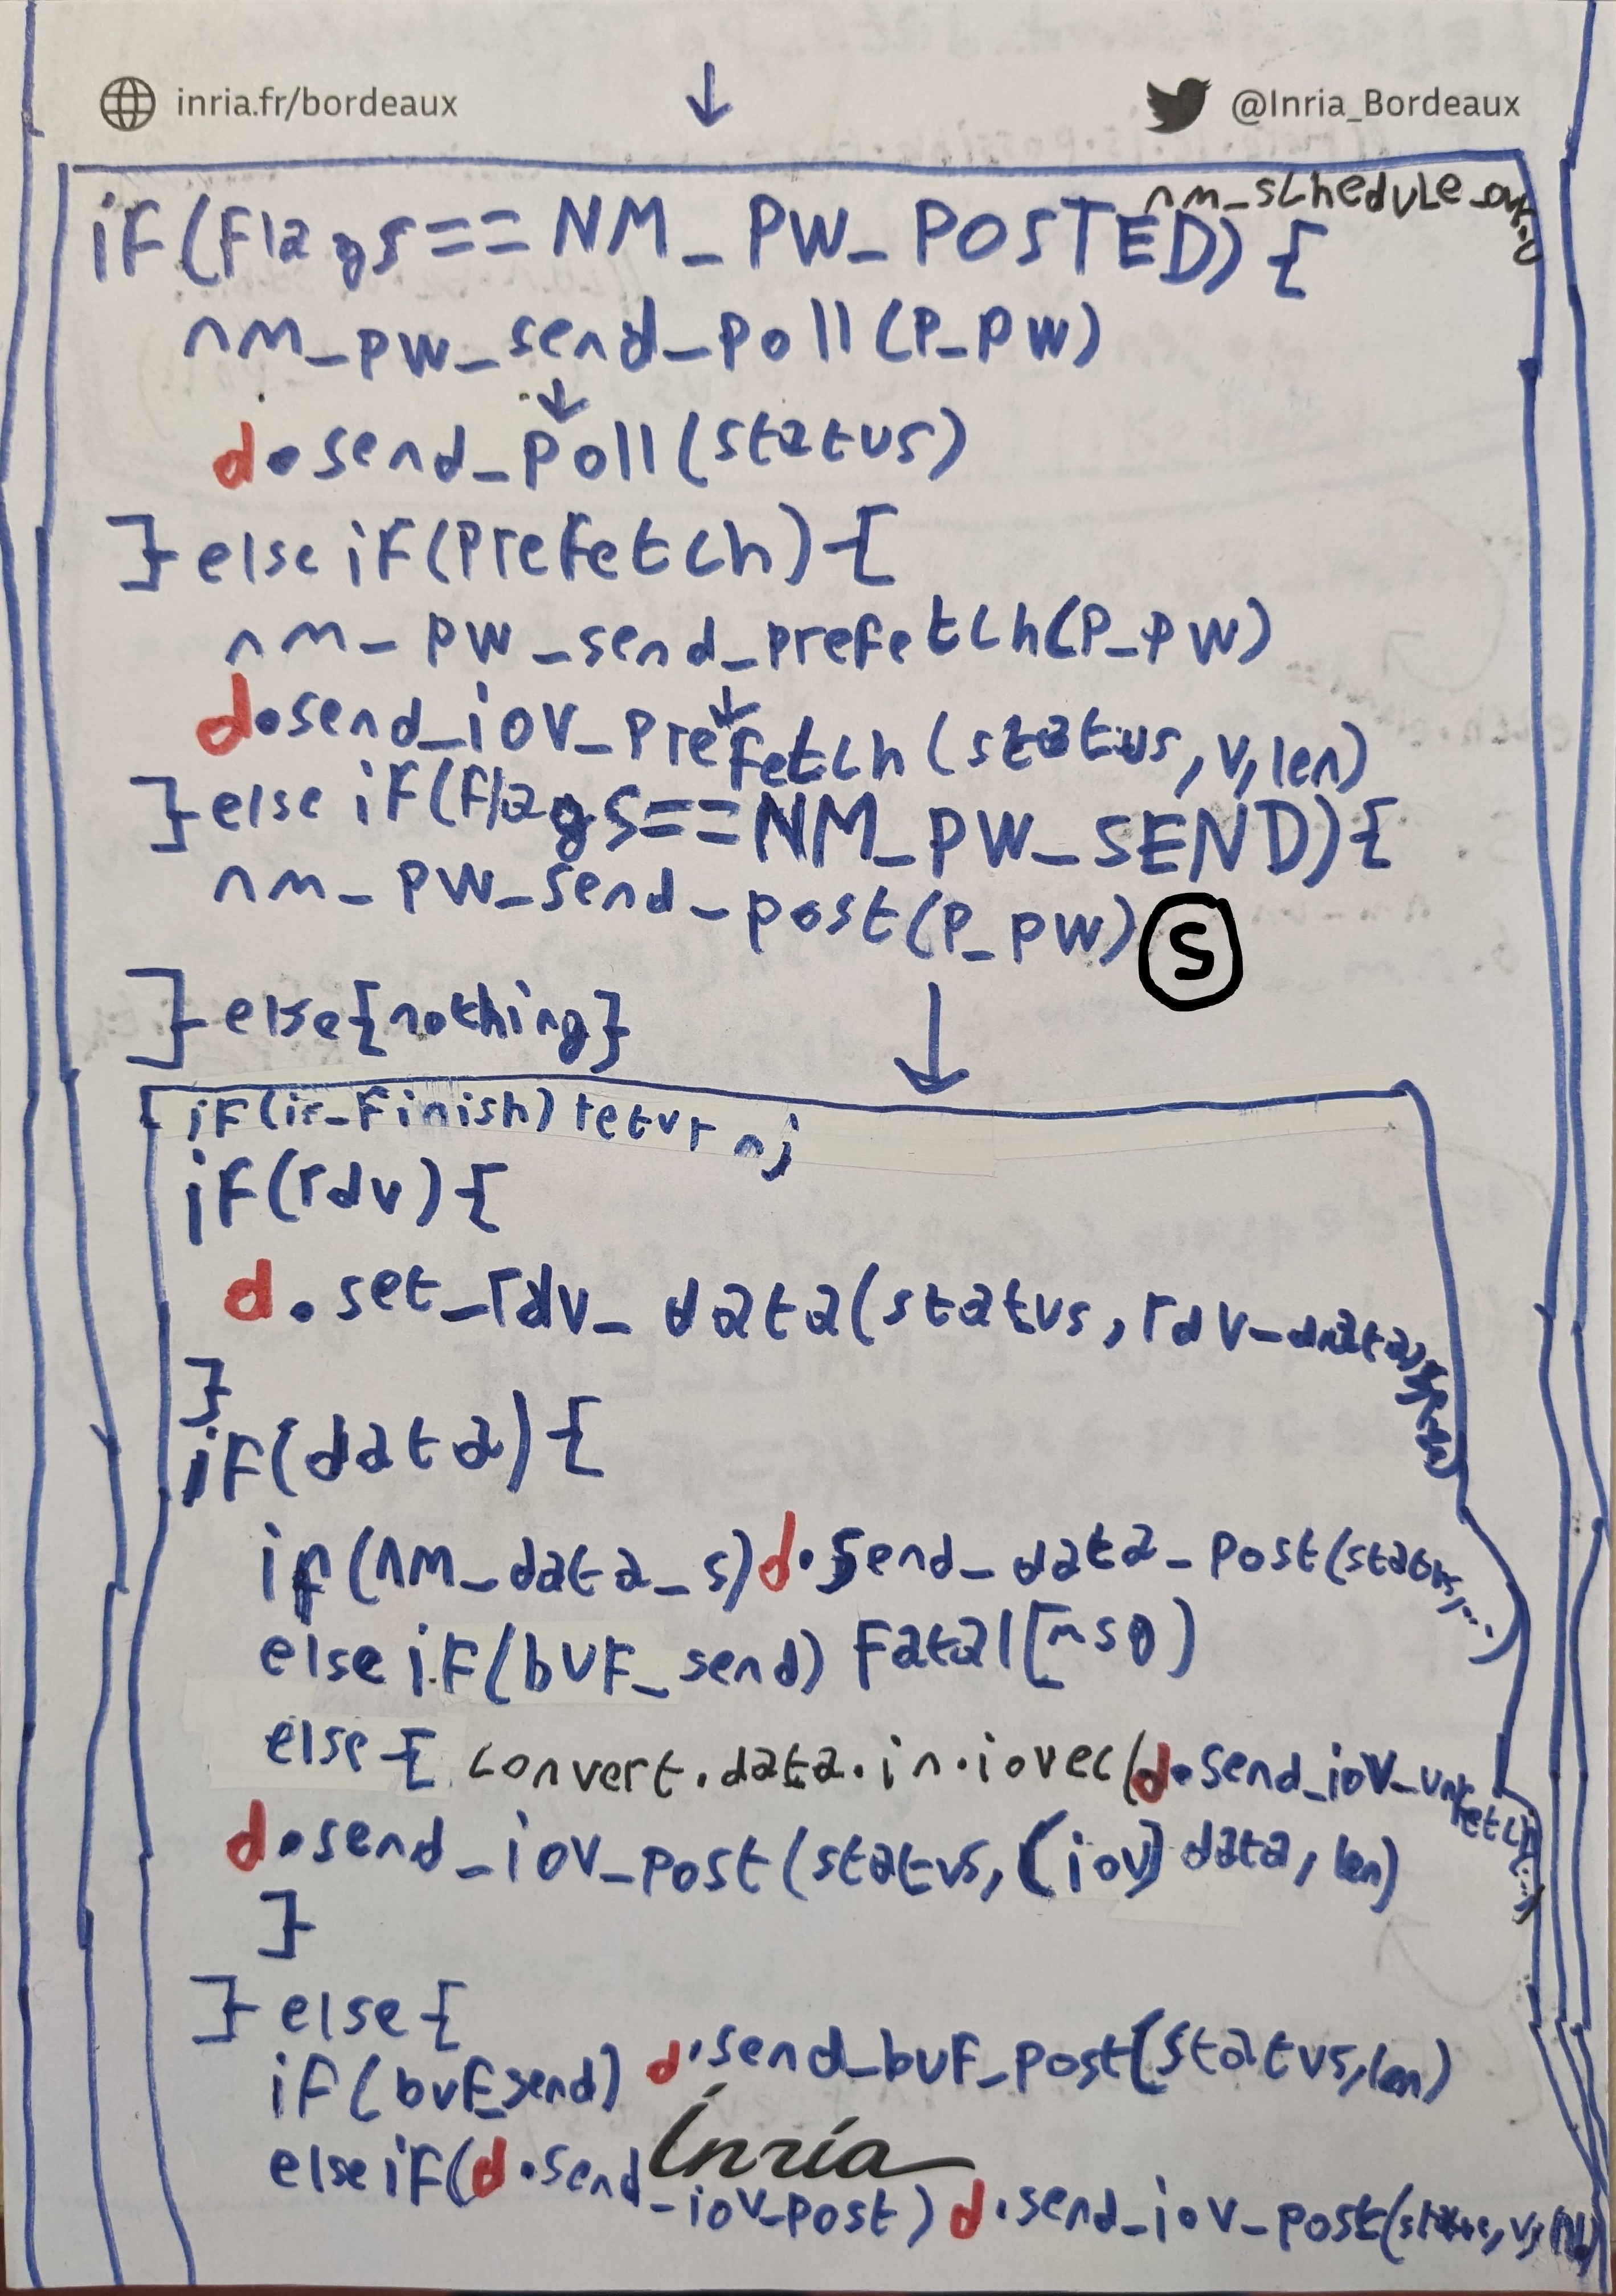 inria.fr/bordeaux
@Inria_Bordeaux
nm_schedule_out
if(flags==NM_PW_POSTED){
nm_pw_send_poll(P_PW)
d.send_poll(status)
}else if(prefetch){
nm_pw_send_prefetch(P_PW)
d.send_iov_prefetch(status,v,len)
}else if(flags==NM_PW_SEND){
nm_pw_send_post(P_PW) S
}else{nothing}
if(is_finish)return;
if(rdv){
d.set_rdv_data(status,rdv_data,
}
if(data){
if(nm_data_s)d.send_data_post(status,...)
else if(buf_send) Fatal
else{ convert.data.in.iovec(d.send_iov_unfetch...)
d.send_iov_post(status,(iov)data,len)
}
}else{
if(buf_send) d.send_buf_post(status,len)
Inria
else if(d.send_iov_post) d.send_iov_post(status,v,